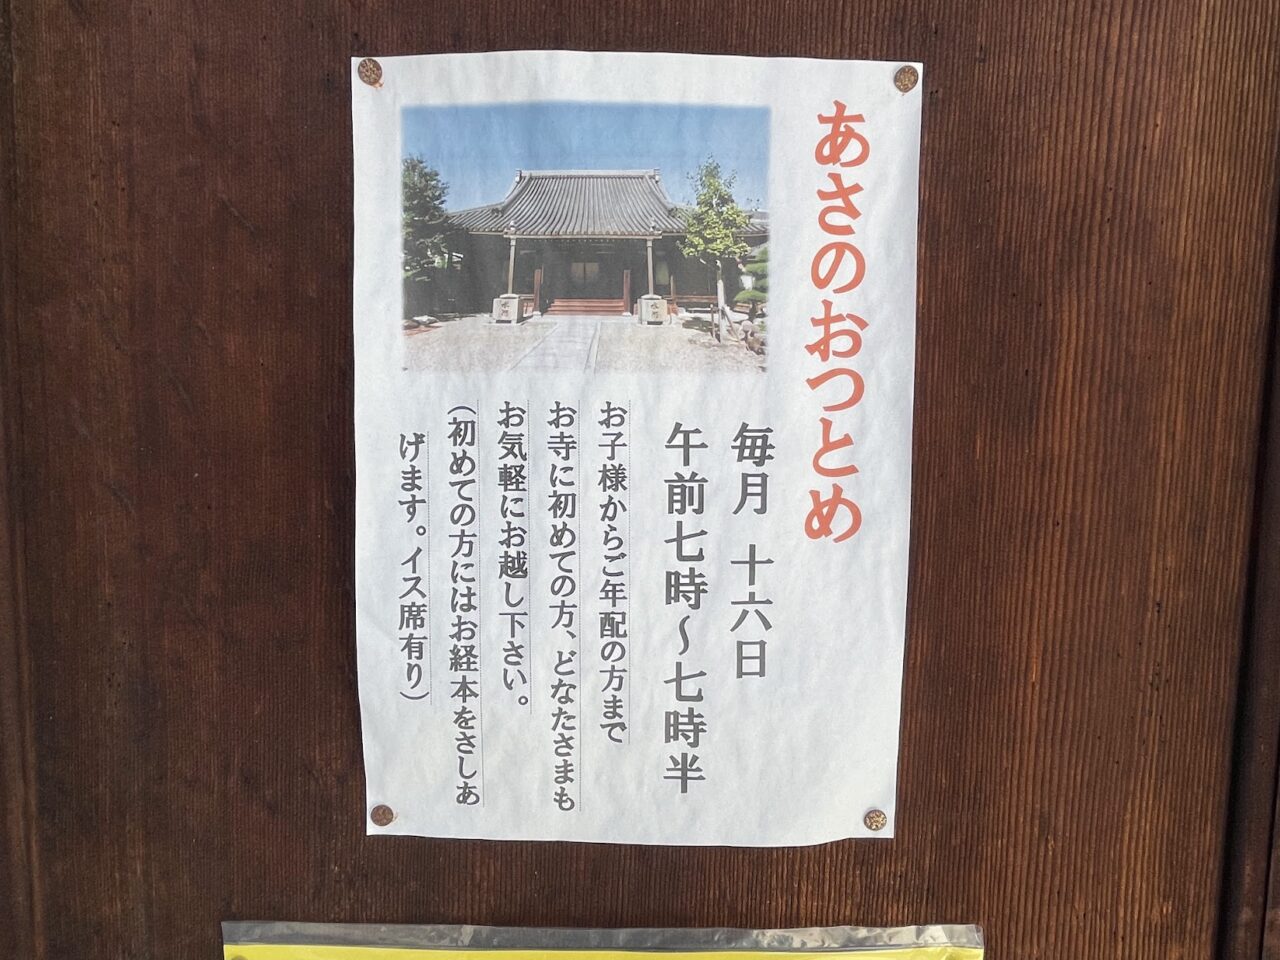 あさのおつとめ
毎月 十六日
午前七時～七時半
お子様からご年配の方まで
お寺に初めての方、どなたさまも
お気軽にお越し下さい。
（初めての方にはお経本をさしあ
げます。イス席有り）